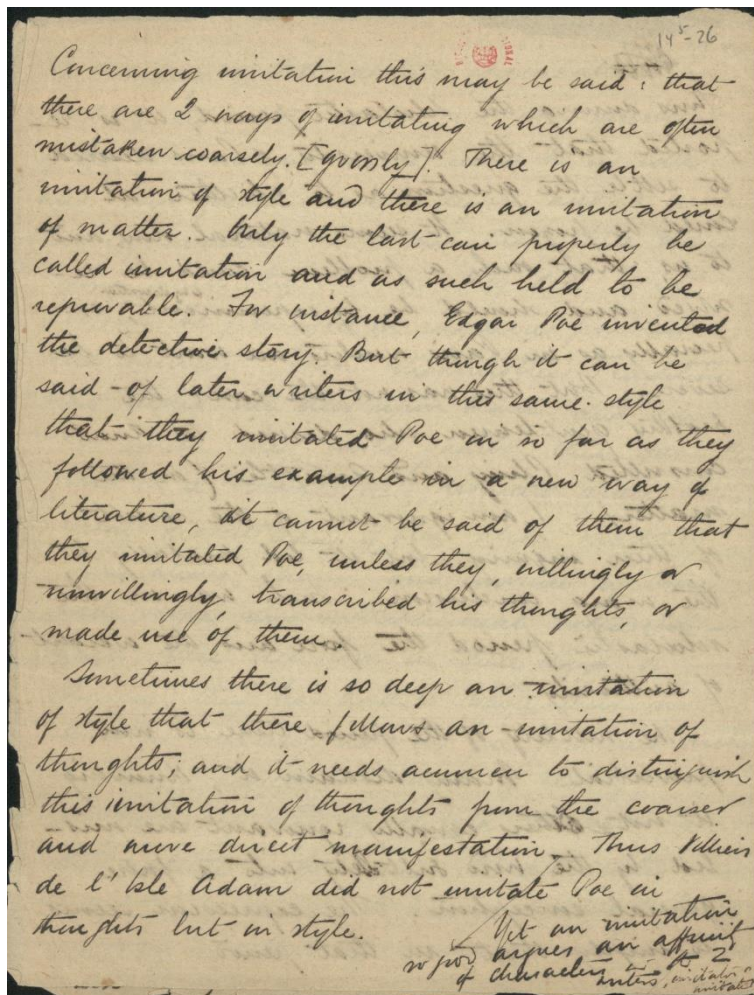 14⁵-26
Concerning imitation this may be said: that
there are 2 ways of imitating which are often
mistaken coarsely. [grossly]. There is an
imitation of style and there is an imitation
of matter. Only the last can properly be
called imitation and as such held to be
reprovable. For instance, Edgar Poe invented
the detective story. But though it can be
said - of later writers in this same style
that they imitated Poe in so far as they
followed his example in a new way of
literature, it cannot be said of them that
they imitated Poe, unless they, willingly or
unwillingly, transcribed his thoughts, or
made use of them.
Sometimes there is so deep an imitation
of style that there follows an imitation of
thoughts; and it needs acumen to distinguish
this imitation of thoughts from the coarser
and more direct manifestation. Thus Villiers
de l'Isle Adam did not imitate Poe in
thoughts but in style.
Yet an imitation
so good argues an affinity
of characters in 2
writers, imitator
imitated